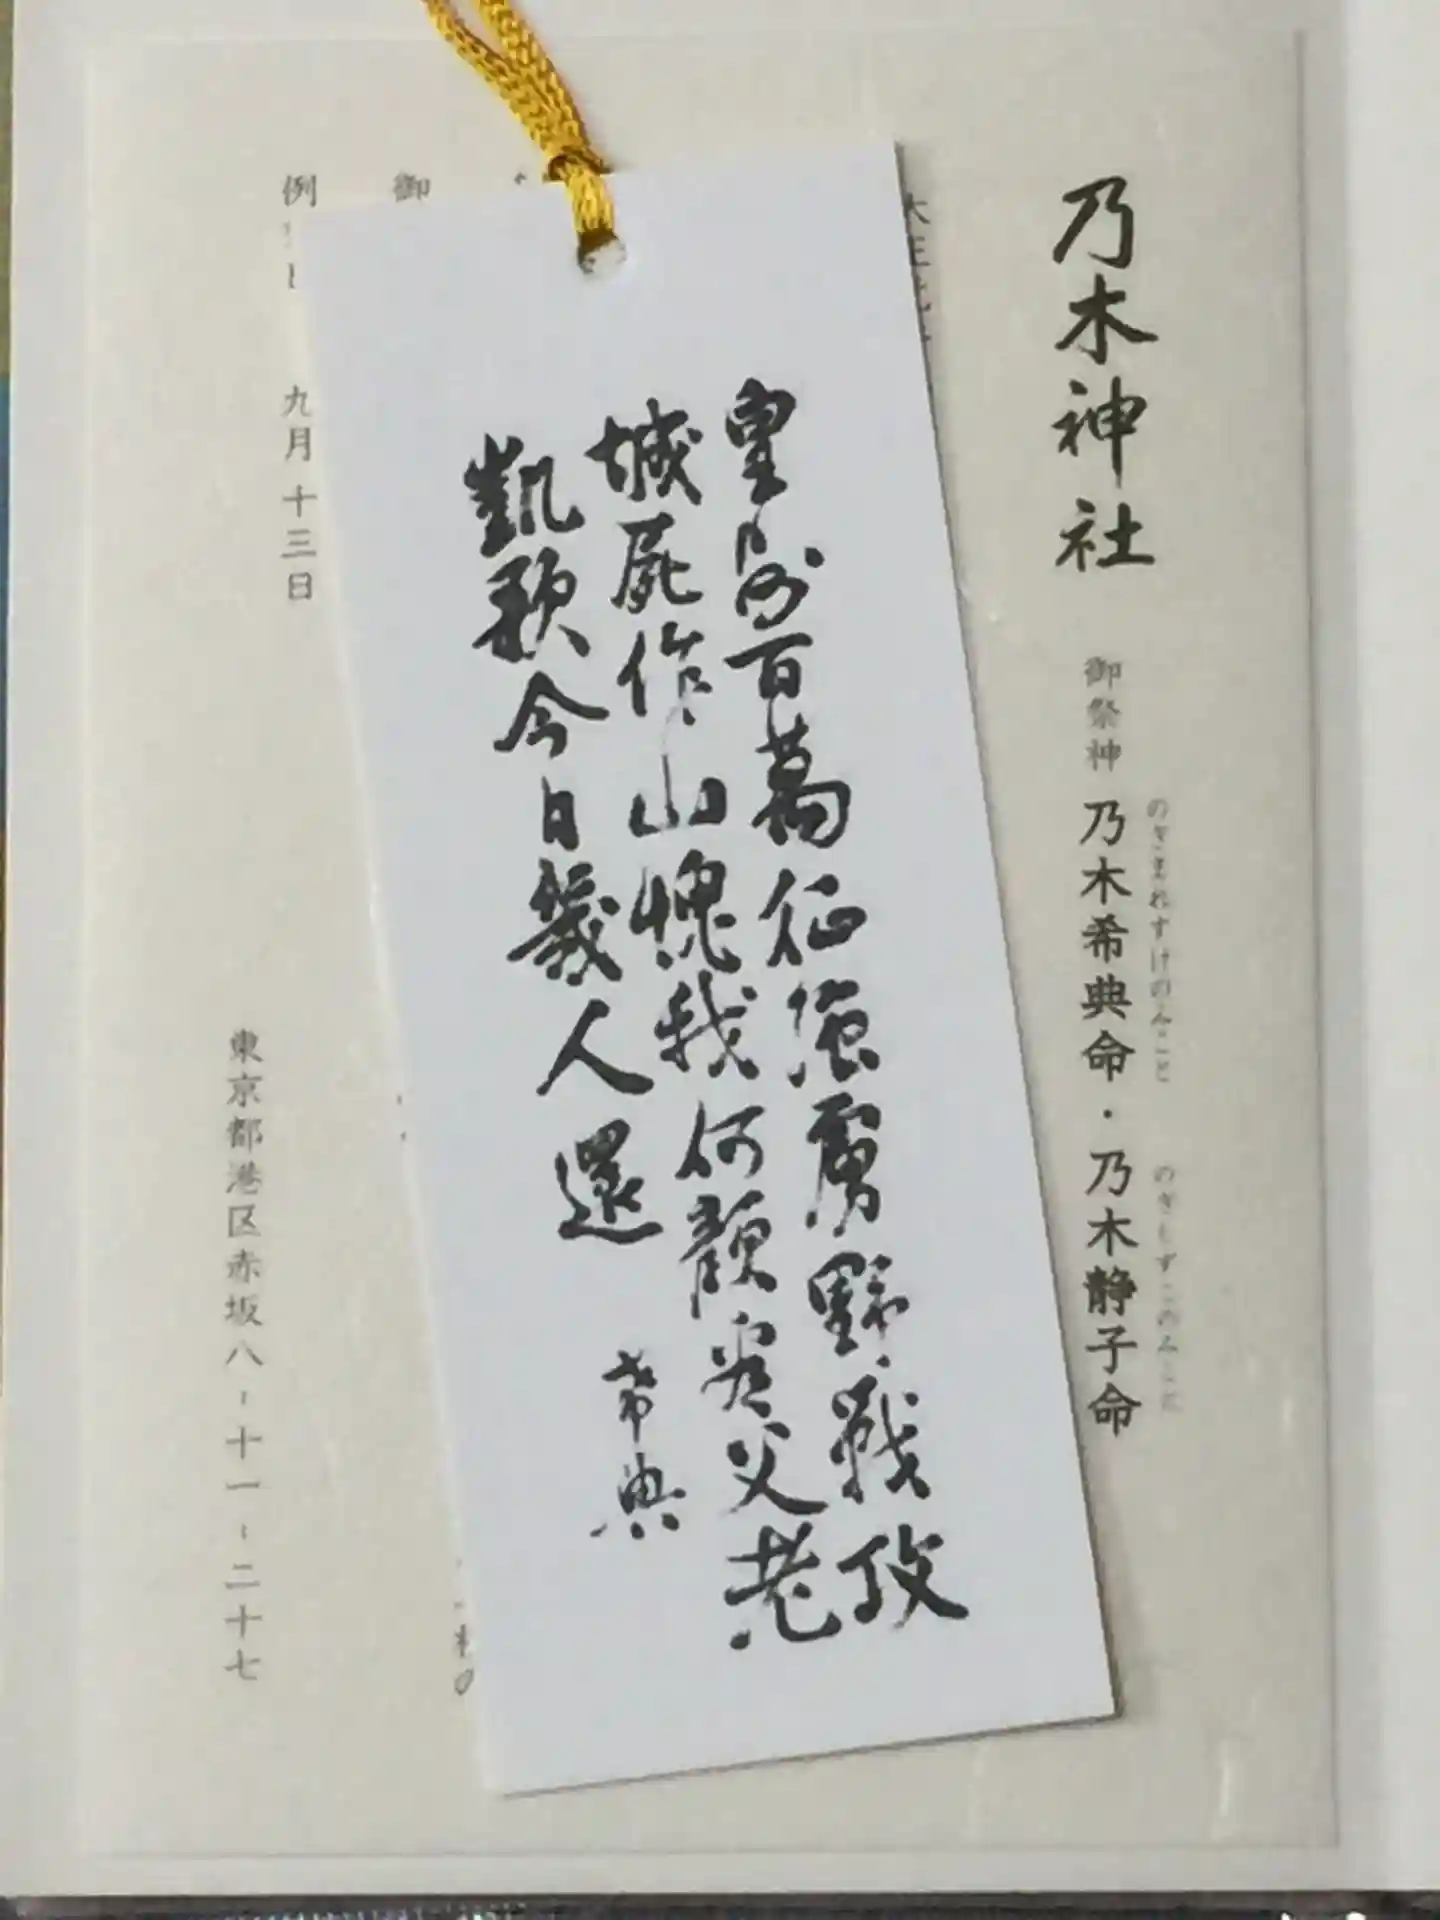 乃木神社
御祭神 乃木希典命・乃木静子命
のぎまれすけのみこと
のぎしずこのみこと
皇師百萬征強虜野戰攻
城屍作山愧我何顔看父老
凱歌今日幾人還
希典
御
例
九月十三日
東京都港区赤坂八-十一-二十七